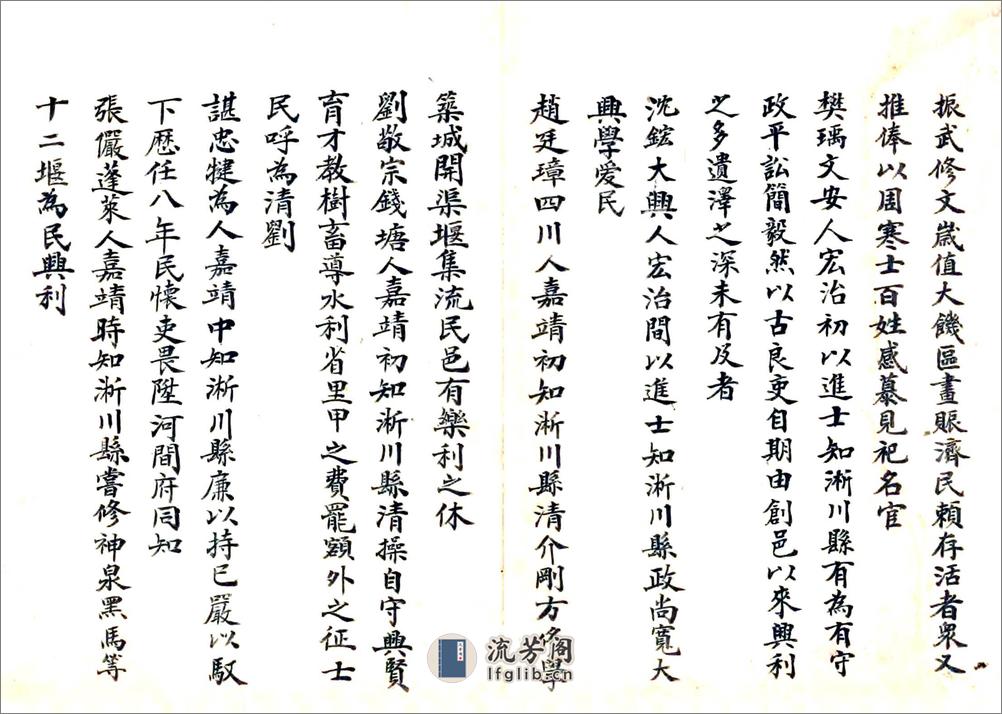 振武修文歲值大饑區畫賑濟民賴存活者眾又
推俸以周寒士百姓感慕見祀名宦
樊瑀文安人宏治初以進士知淅川縣有為有守
政平訟簡毅然以古良吏自期由創邑以來興利
之多遺澤之深未有及者
沈鋐大興人宏治間以進士知淅川縣政尚寬大
興學爱民
趙廷璋四川人嘉靖初知淅川縣清介剛方修學
築城開渠堰集流民邑有樂利之休
劉敬宗錢塘人嘉靖初知淅川縣清操自守興賢
育才教樹畜導水利省里甲之費罷額外之征士
民呼為清劉
諶忠犍為人嘉靖中知淅川縣廉以持已嚴以馭
下歷任八年民懷吏畏陞河間府同知
張儼蓬萊人嘉靖時知淅川縣嘗修神泉黑馬等
十二堰為民興利
流芳閣
lfglib.cn